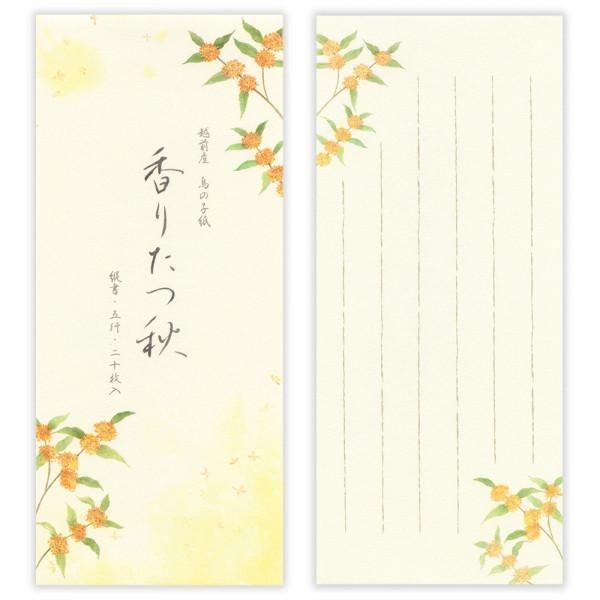 越前産 鳥の子紙
香りたつ秋
縦書・五行・二十枚入